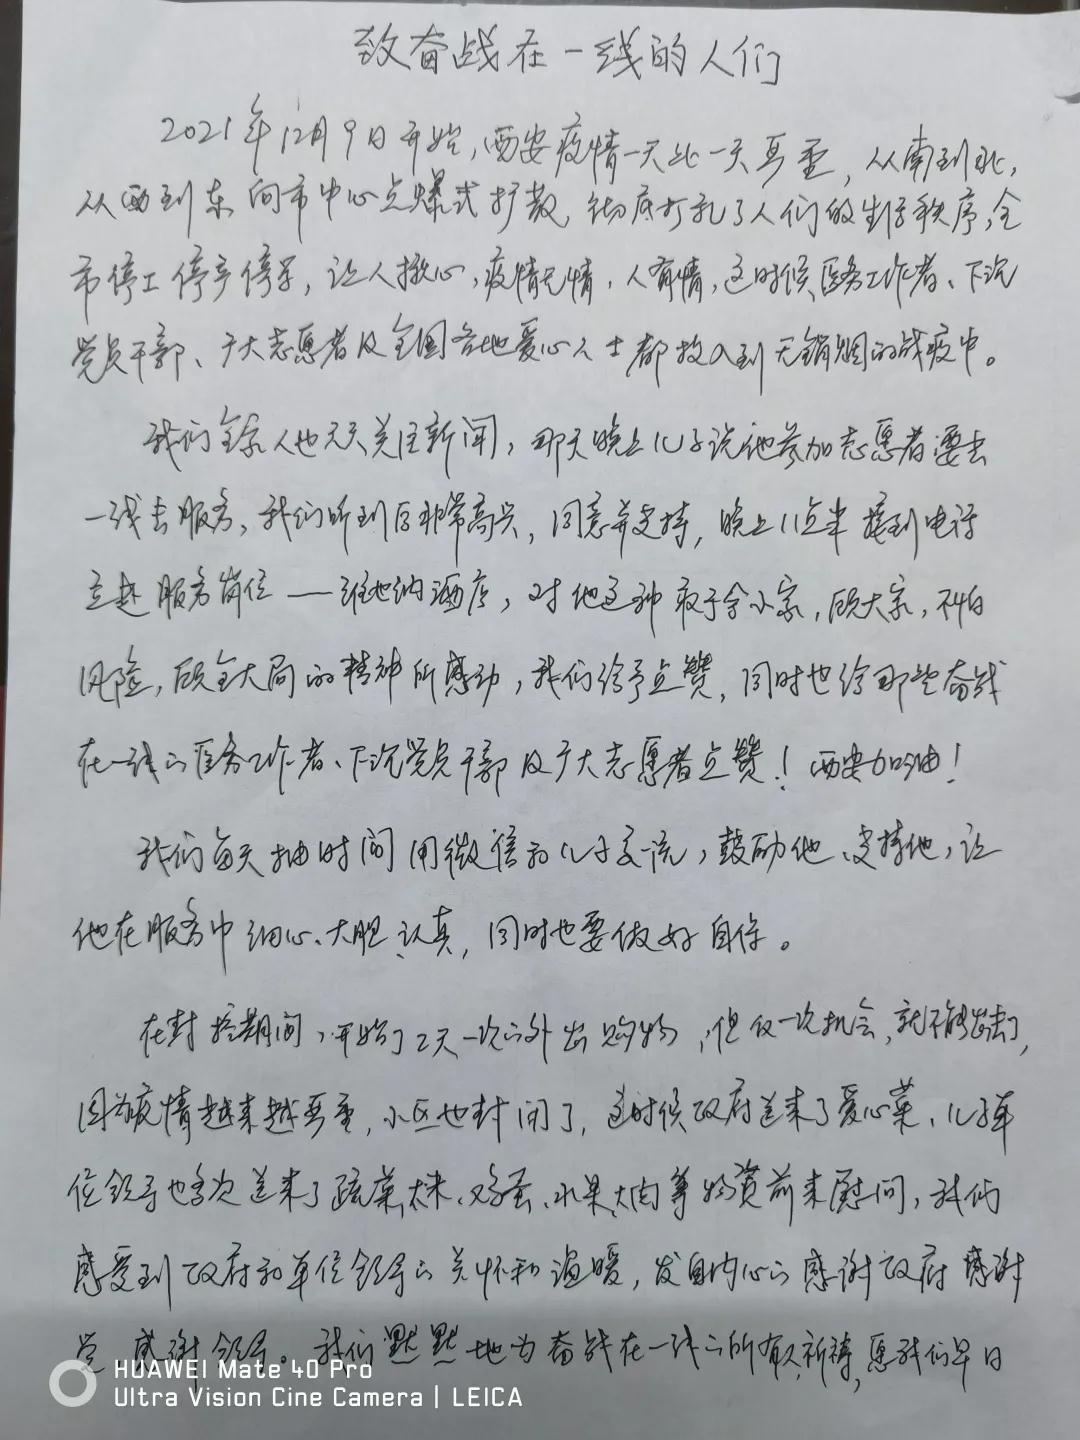 致奋战在一线的人们
2021年12月9日开始,西安疫情一天比一天严重,从南到北,
从西到东向市中心点爆式扩散,彻底打乱了人们的生活秩序,全
市停工停产停学,让人揪心,疫情无情,人有情,这时候医务工作者、下沉
党员干部、广大志愿者及全国各地爱心人士都投入到无销烟的战疫中。
我们全家人也天天关注新闻,那天晚上儿子说他参加志愿者要去
一线去服务,我们听到后非常高兴,同意并支持,晚上11点半接到电话
立赴服务岗位——维也纳酒店,对他这种敢于舍小家,顾大家,不怕
风险,顾全大局的精神所感动,我们给予点赞,同时也给那些奋战
在一线的医务工作者、下沉党员干部及广大志愿者点赞!西安加油!
我们每天抽时间用微信和儿子交流,鼓励他、支持他,让
他在服务中细心、大胆、认真,同时也要做好自保。
在封控期间,开始了2天一次的外出购物,但仅一次机会,就不能出去了,
因为疫情越来越严重,小区也封闭了,这时候政府送来了爱心菜、儿子单
位领导也多次送来了蔬菜、大米、鸡蛋、水果、大肉等物资前来慰问,我们
感受到政府和单位领导的关怀和温暖,发自内心的感谢政府感谢
党感谢领导。我们默默地为奋战在一线的所有人祈祷,愿我们早日
HUAWEI Mate 40 Pro
Ultra Vision Cine Camera | LEICA